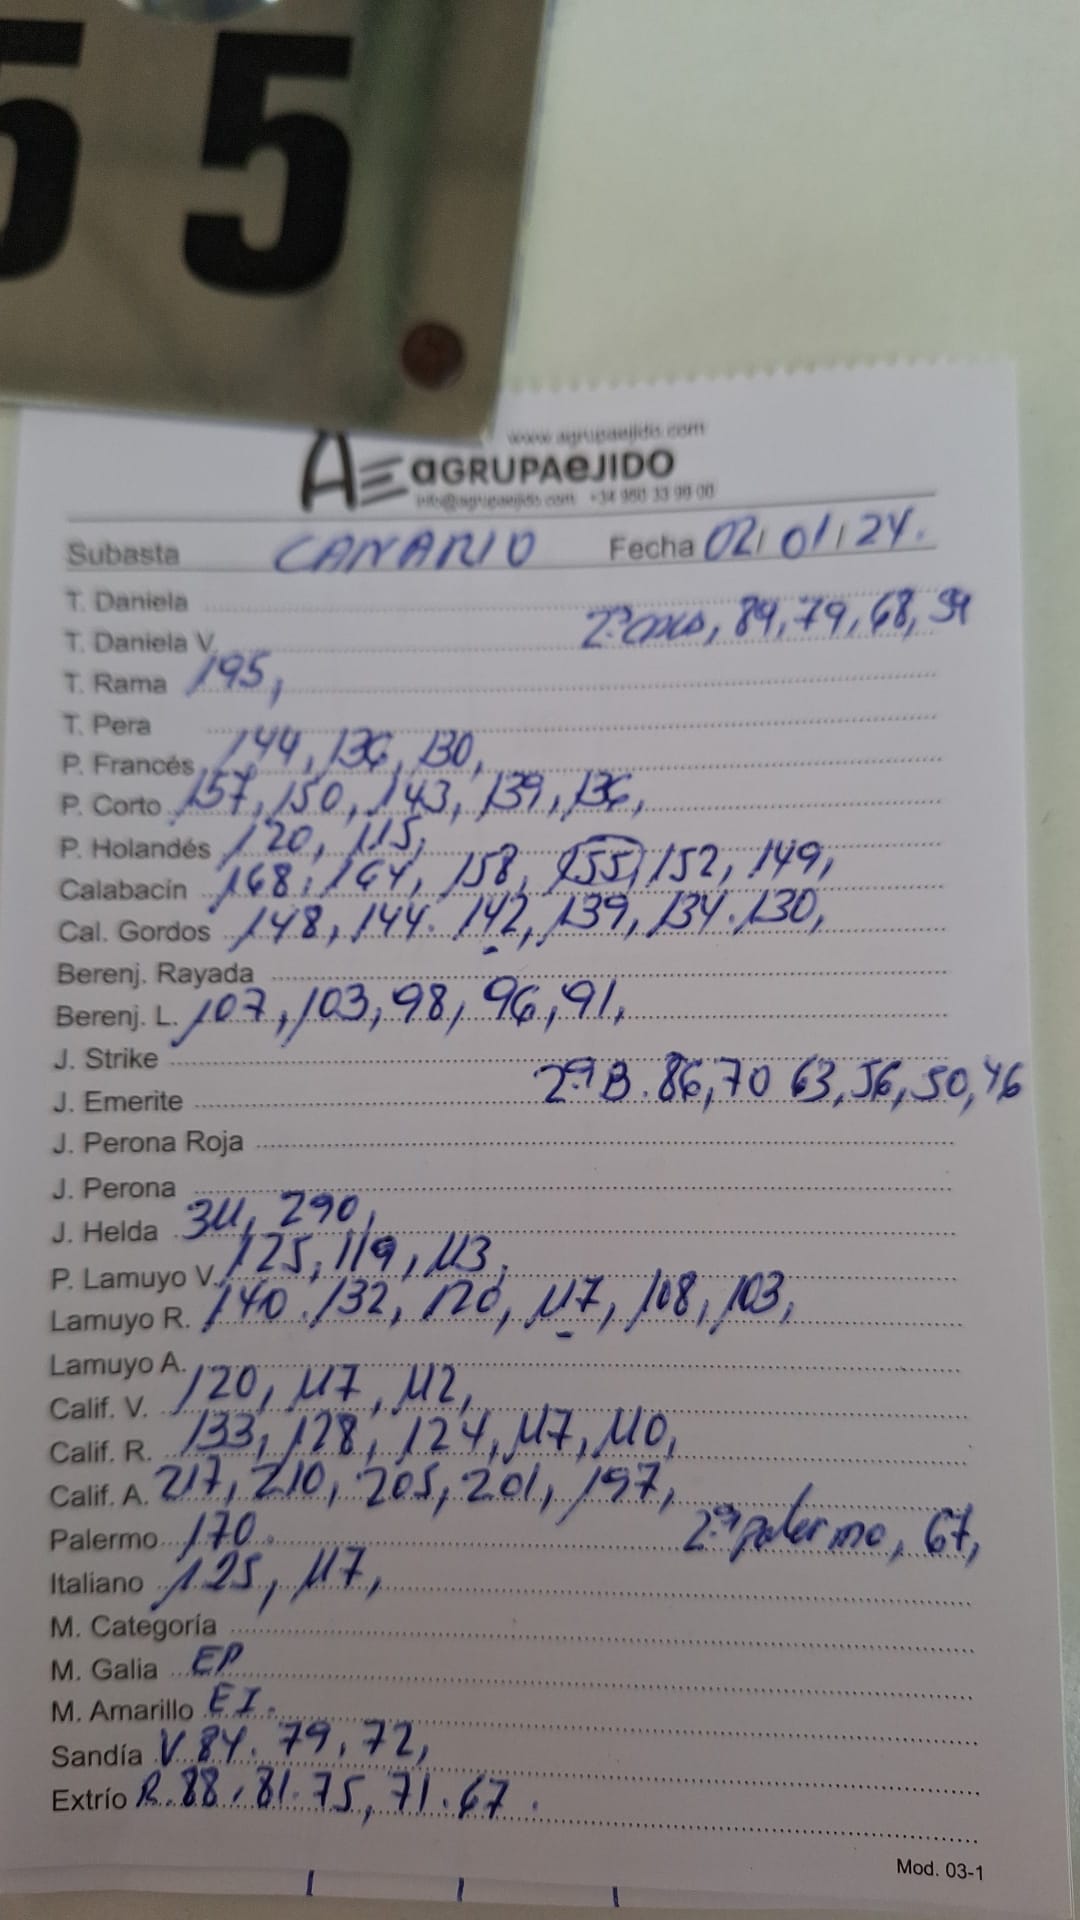 55
www.agrupaejido.com
AE aGRUPAeJIDO
info@agrupaejido.com +34 950 33 99 00
Subasta CANARIO Fecha 02/01/24.
T. Daniela
2ª 84, 79, 68, 59
T. Daniela V.
T. Rama 195,
T. Pera
P. Francés 144, 136, 130,
P. Corto 157, 150, 143, 139, 136,
P. Holandés 120, 115,
Calabacín 168, 164, 158, 155, 152, 149,
Cal. Gordos 148, 144. 142, 139, 134. 130,
Berenj. Rayada
Berenj. L. 107, 103, 98, 96, 91,
J. Strike
J. Emerite 2ª B. 86, 70 63, 56, 50, 46
J. Perona Roja
J. Perona
J. Helda 311, 290,
P. Lamuyo V. 125, 119, 113,
Lamuyo R. 140. 132, 120, 117, 108, 103,
Lamuyo A.
Calif. V. 120, 117, 112,
Calif. R. 133, 128, 124, 117, 110,
Calif. A. 217, 210, 205, 201, 197,
Palermo 170. 2ª palermo, 67,
Italiano 125, 117,
M. Categoría
M. Galia EP
M. Amarillo EI.
Sandía V 84. 79, 72,
Extrío R. 88, 81. 75, 71. 67.
Mod. 03-1